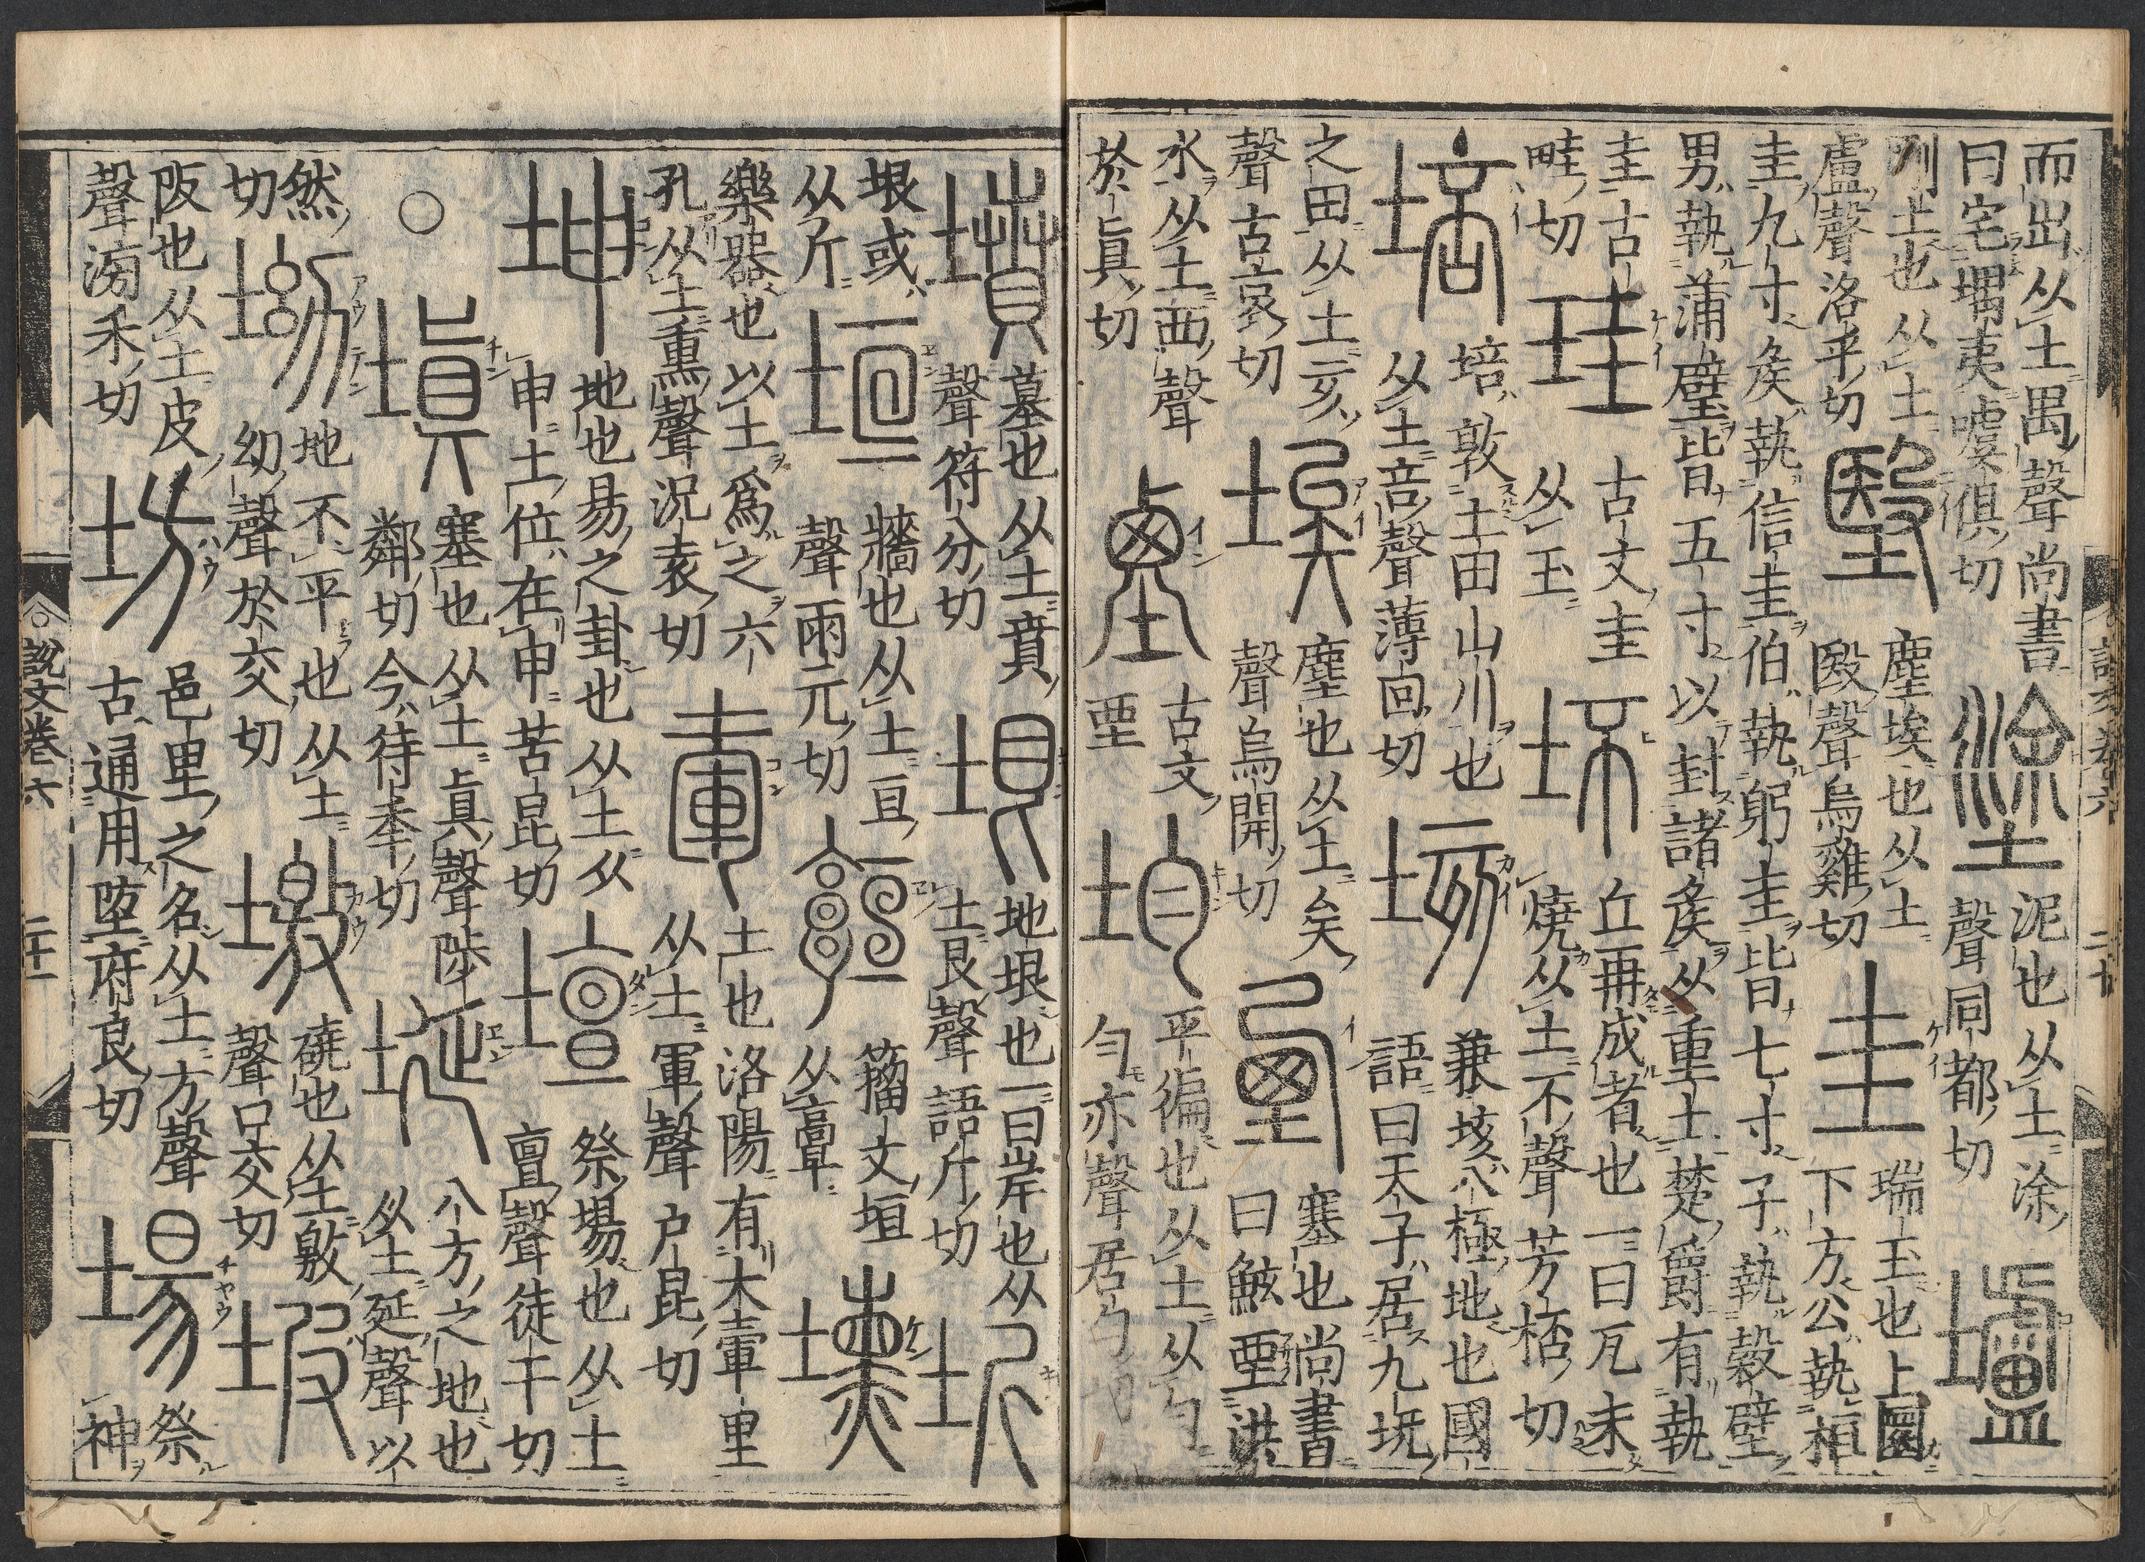 說文卷六 二十
而出从土禺聲尚書
曰宅堣夷噳俱切
塗
泥也从土涂
聲同都切
壚
剛土也从土
盧聲洛乎切
𡑣
塵埃也从土
殹聲烏雞切
圭
瑞玉也上圓
下方公執桓
圭九寸矦執信圭伯執躬圭皆七寸子執穀璧
男執蒲璧皆五寸以封諸矦从重土楚爵有執
圭古
畦切
珪
古文圭
从玉
坏
丘再成者也一曰瓦未
燒从土不聲芳桮切
培
培敦土田山川也
从土咅聲薄回切
垓
兼垓八極地也國
語曰天子居九垓
之田从土亥
聲古哀切
埃
塵也从土矣
聲烏開切
垔
塞也尚書
曰鯀垔洪
水从土西聲
於眞切
𡎱
古文
垔
均
平徧也从土从勻
勻亦聲居勻切
墳
墓也从土賁
聲符分切
垠
地垠也一曰岸也从
土艮聲語斤切
圻
垠或
从斤
垣
牆也从土亘
聲雨元切
𩫭
籒文垣
从𩫖
壎
樂器也以土爲之六
孔从土熏聲況袁切
㙥
土也洛陽有大㙥里
从土軍聲户昆切
坤
地也易之卦也从土从
申土位在申苦昆切
壇
祭場也从土
亶聲徒干切
○
塡
塞也从土眞聲陟
鄰切今待秊切
埏
八方之地也
从土延聲以
然
切
坳
地不平也从土
幼聲於交切
墽
磽也从土敫
聲口交切
坡
阪也从土皮
聲滂禾切
坊
邑里之名从土方聲
古通用堕府良切
場
祭
神
說文卷六 二十一